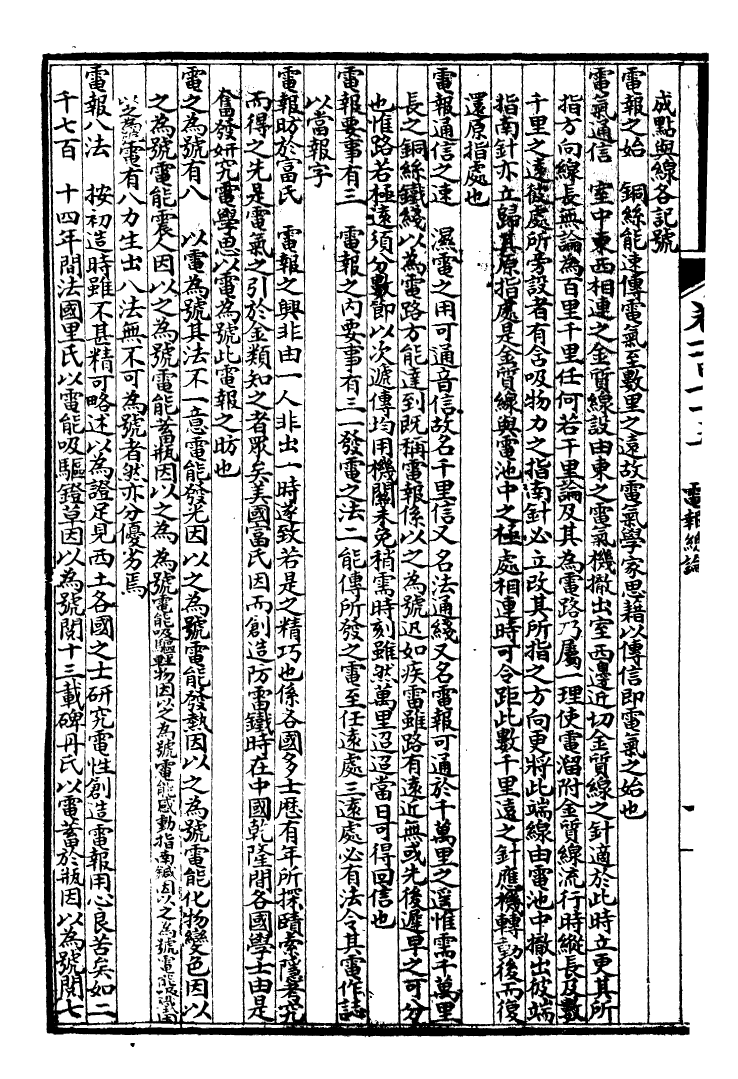 成點與線各記號
電報之始　銅絲能速傳電氣至數里之遠故電氣學家思藉以傳信即電氣之始也
電氣通信　室中東西相連之金質線設由東之電氣機撤出室西邊近切金質線之針適於此時立更其所
指方向線長無論為百里千里任何若干里論及其為電路乃屬一理使電溜附金質線流行時縱長及數
千里之遠彼處所旁設者有含吸物力之指南針必立改其所指之方向更將此端線由電池中撤出彼端
指南針亦立歸其原指處是金質線與電池中之極處相連時可令距此數千里遠之針應機轉動後而復
還原指處也
電報通信之速　濕電之用可通音信故名千里信又名法通綫又名電報可通於千萬里之遥惟需千萬里
長之銅絲鐵綫以為電路方能達到既稱電報係以之為號迟如疾雷雖路有遠近無或先後遲早之可分
也惟路若極遠須分數節以次遞傳均用機關未免稍需時刻雖然萬里迢迢當日可得回信也
電報要事有三　電報之內要事有三一發電之法二能傳所發之電至任遠處三遠處必有法令其電作誌
以當報字
電報昉於富氏　電報之興非由一人非出一時遂致若是之精巧也係各國多士歷有年所探賾索隱考究
而得之先是電氣之引於金類知之者眾矣美國富氏因而創造防雷鐵時在中國乾隆間各國學士由是
奮發妍究電學思以電為號此電報之昉也
電之為號有八　以電為號其法不一意電能發光因以之為號電能發熱因以之為號電能化物變色因以
之為號電能震人因以之為號電能蓄瓶因以之為為號電能吸驅輕物因以之為號電能感動指南鍼因以之為號電能
以之為號電有八力生出八法無不可為號者然亦分優劣焉
電報八法　按初造時雖不甚精可略述以為證足見西土各國之士研究電性創造電報用心良苦矣如二
千七百　十四年間法國里氏以電能吸驅鐙草因以為號閱十三載碑丹氏以電蓄於瓶因以為號閱七
電報總論